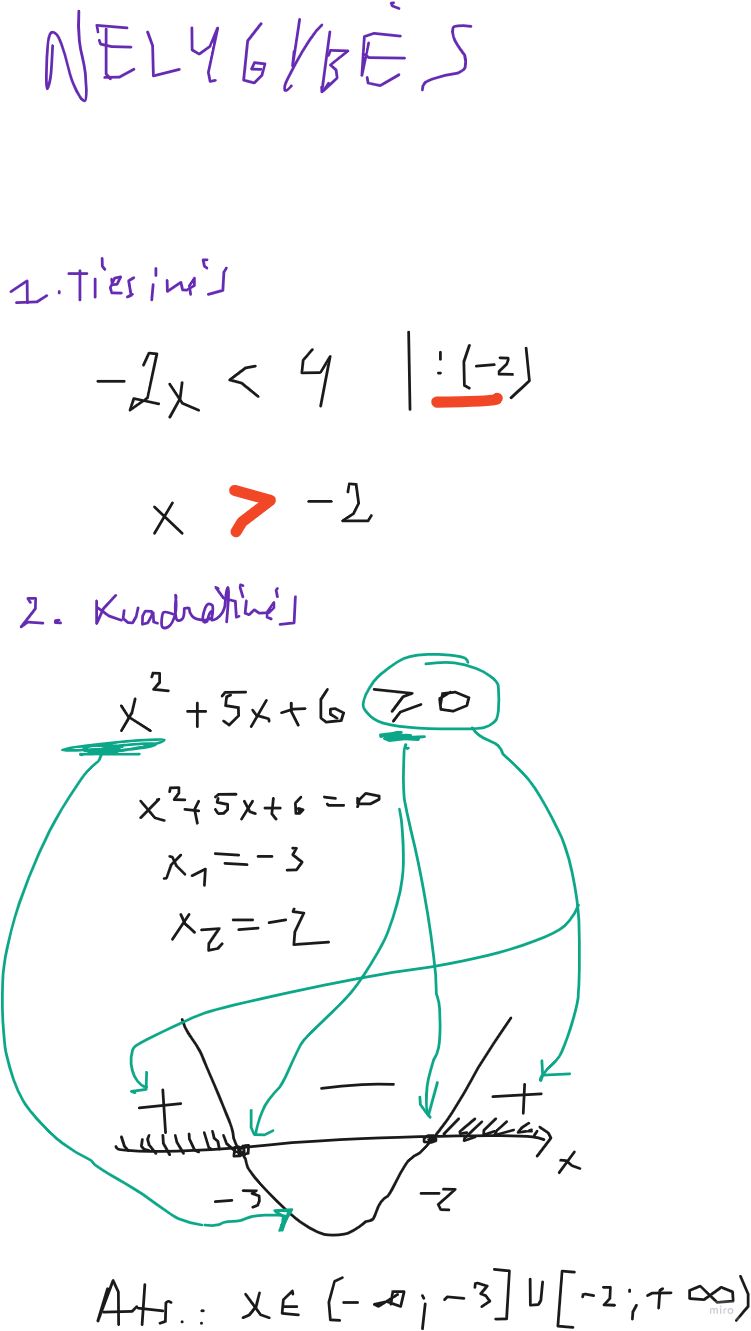 NELYGYBĖS
1. Tiesinės
-2x < 4 | : (-2)
x > -2
2. Kvadratinės
x² + 5x + 6 ≥ 0
x² + 5x + 6 = 0
x₁ = -3
x₂ = -2
+ — +
-3 -2 x
Ats.: x ∈ (-∞; -3] ∪ [-2; +∞)
miro